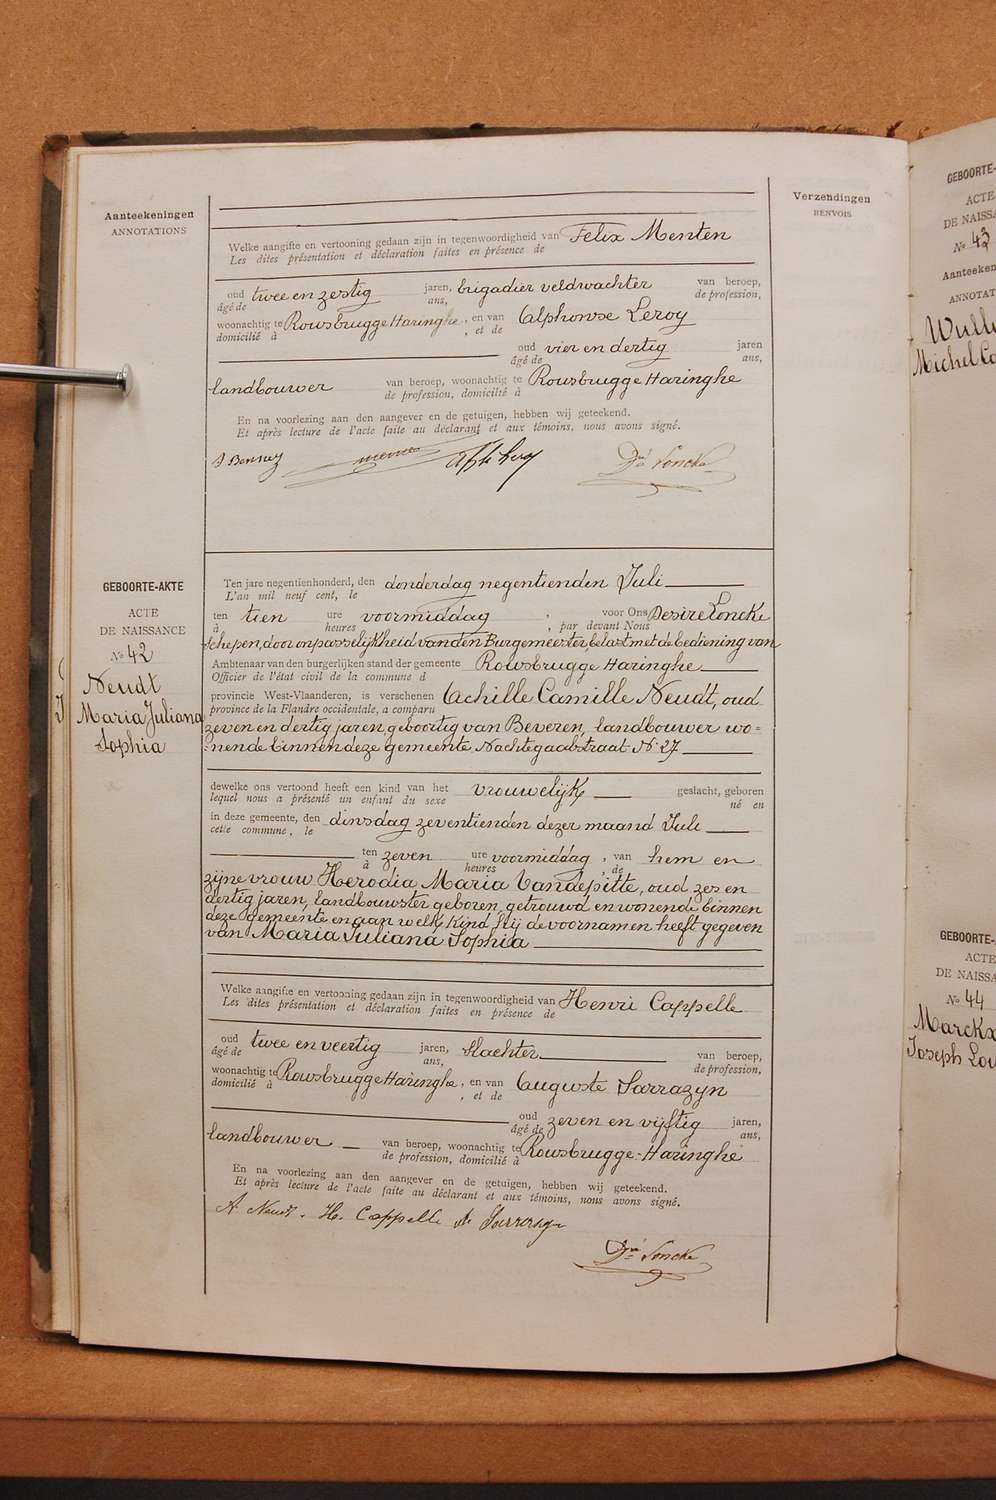 Aanteekeningen
ANNOTATIONS
Verzendingen
RENVOIS
Welke aangifte en vertooning gedaan zijn in tegenwoordigheid van Felix Menten
Les dites présentation et déclaration faites en présence de
oud twee en zestig jaren, brigadier veldwachter van beroep,
âgé de ans, de profession,
woonachtig te Rousbrugge Haringhe, en van Alphonse Leroy
domicilié à , et de
oud vier en dertig jaren
âgé de ans,
landbouwer van beroep, woonachtig te Rousbrugge Haringhe
de profession, domicilié à
En na voorlezing aan den aangever en de getuigen, hebben wij geteekend.
Et après lecture de l'acte faite au déclarant et aux témoins, nous avons signé.
Dré Loncke
GEBOORTE-AKTE
ACTE
DE NAISSANCE
No 42
Neudt
Maria Juliana
Sophia
Ten jare negentienhonderd, den donderdag negentienden Juli
L'an mil neuf cent, le
ten tien ure voormiddag , voor Ons Desiré Loncke
à heures , par devant Nous
schepen, door onpasselijkheid van den Burgemeester belast met de bediening van
Ambtenaar van den burgerlijken stand der gemeente Rousbrugge Haringhe
Officier de l'état civil de la commune d
provincie West-Vlaanderen, is verschenen Achille Camille Neudt, oud
province de la Flandre occidentale, a comparu
zeven en dertig jaren, geboortig van Beveren, landbouwer wo=
=nende binnen deze gemeente, Nachtegaalstraat No 27
dewelke ons vertoond heeft een kind van het vrouwelijk geslacht, geboren
lequel nous a présenté un enfant du sexe né en
in deze gemeente, den dinsdag zeventienden dezer maand Juli
cette commune, le
ten zeven ure voormiddag , van hem en
à heures , de
zijne vrouw Herodia Maria Vandepitte, oud zes en
dertig jaren, landbouwster geboren, getrouwd en wonende binnen
deze gemeente en aan welk kind hij de voornamen heeft gegeven
van Maria Juliana Sophia
Welke aangifte en vertooning gedaan zijn in tegenwoordigheid van Henri Cappelle
Les dites présentation et déclaration faites en présence de
oud twee en veertig jaren, slachter van beroep,
âgé de ans, de profession,
woonachtig te Rousbrugge Haringhe, en van Auguste Sarrazyn
domicilié à , et de
oud zeven en vijftig jaren,
âgé de ans,
landbouwer van beroep, woonachtig te Rousbrugge-Haringhe
de profession, domicilié à
En na voorlezing aan den aangever en de getuigen, hebben wij geteekend.
Et après lecture de l'acte faite au déclarant et aux témoins, nous avons signé.
A Neudt. H. Cappelle A Sarrazyn
Dré Loncke
GEBOORTE-
ACTE
DE NAISSA
No 43
Aanteeken
ANNOTAT
Wull
Michel Ca
GEBOORTE-
ACTE
DE NAISSA
No 44
Marckx
Joseph Lou